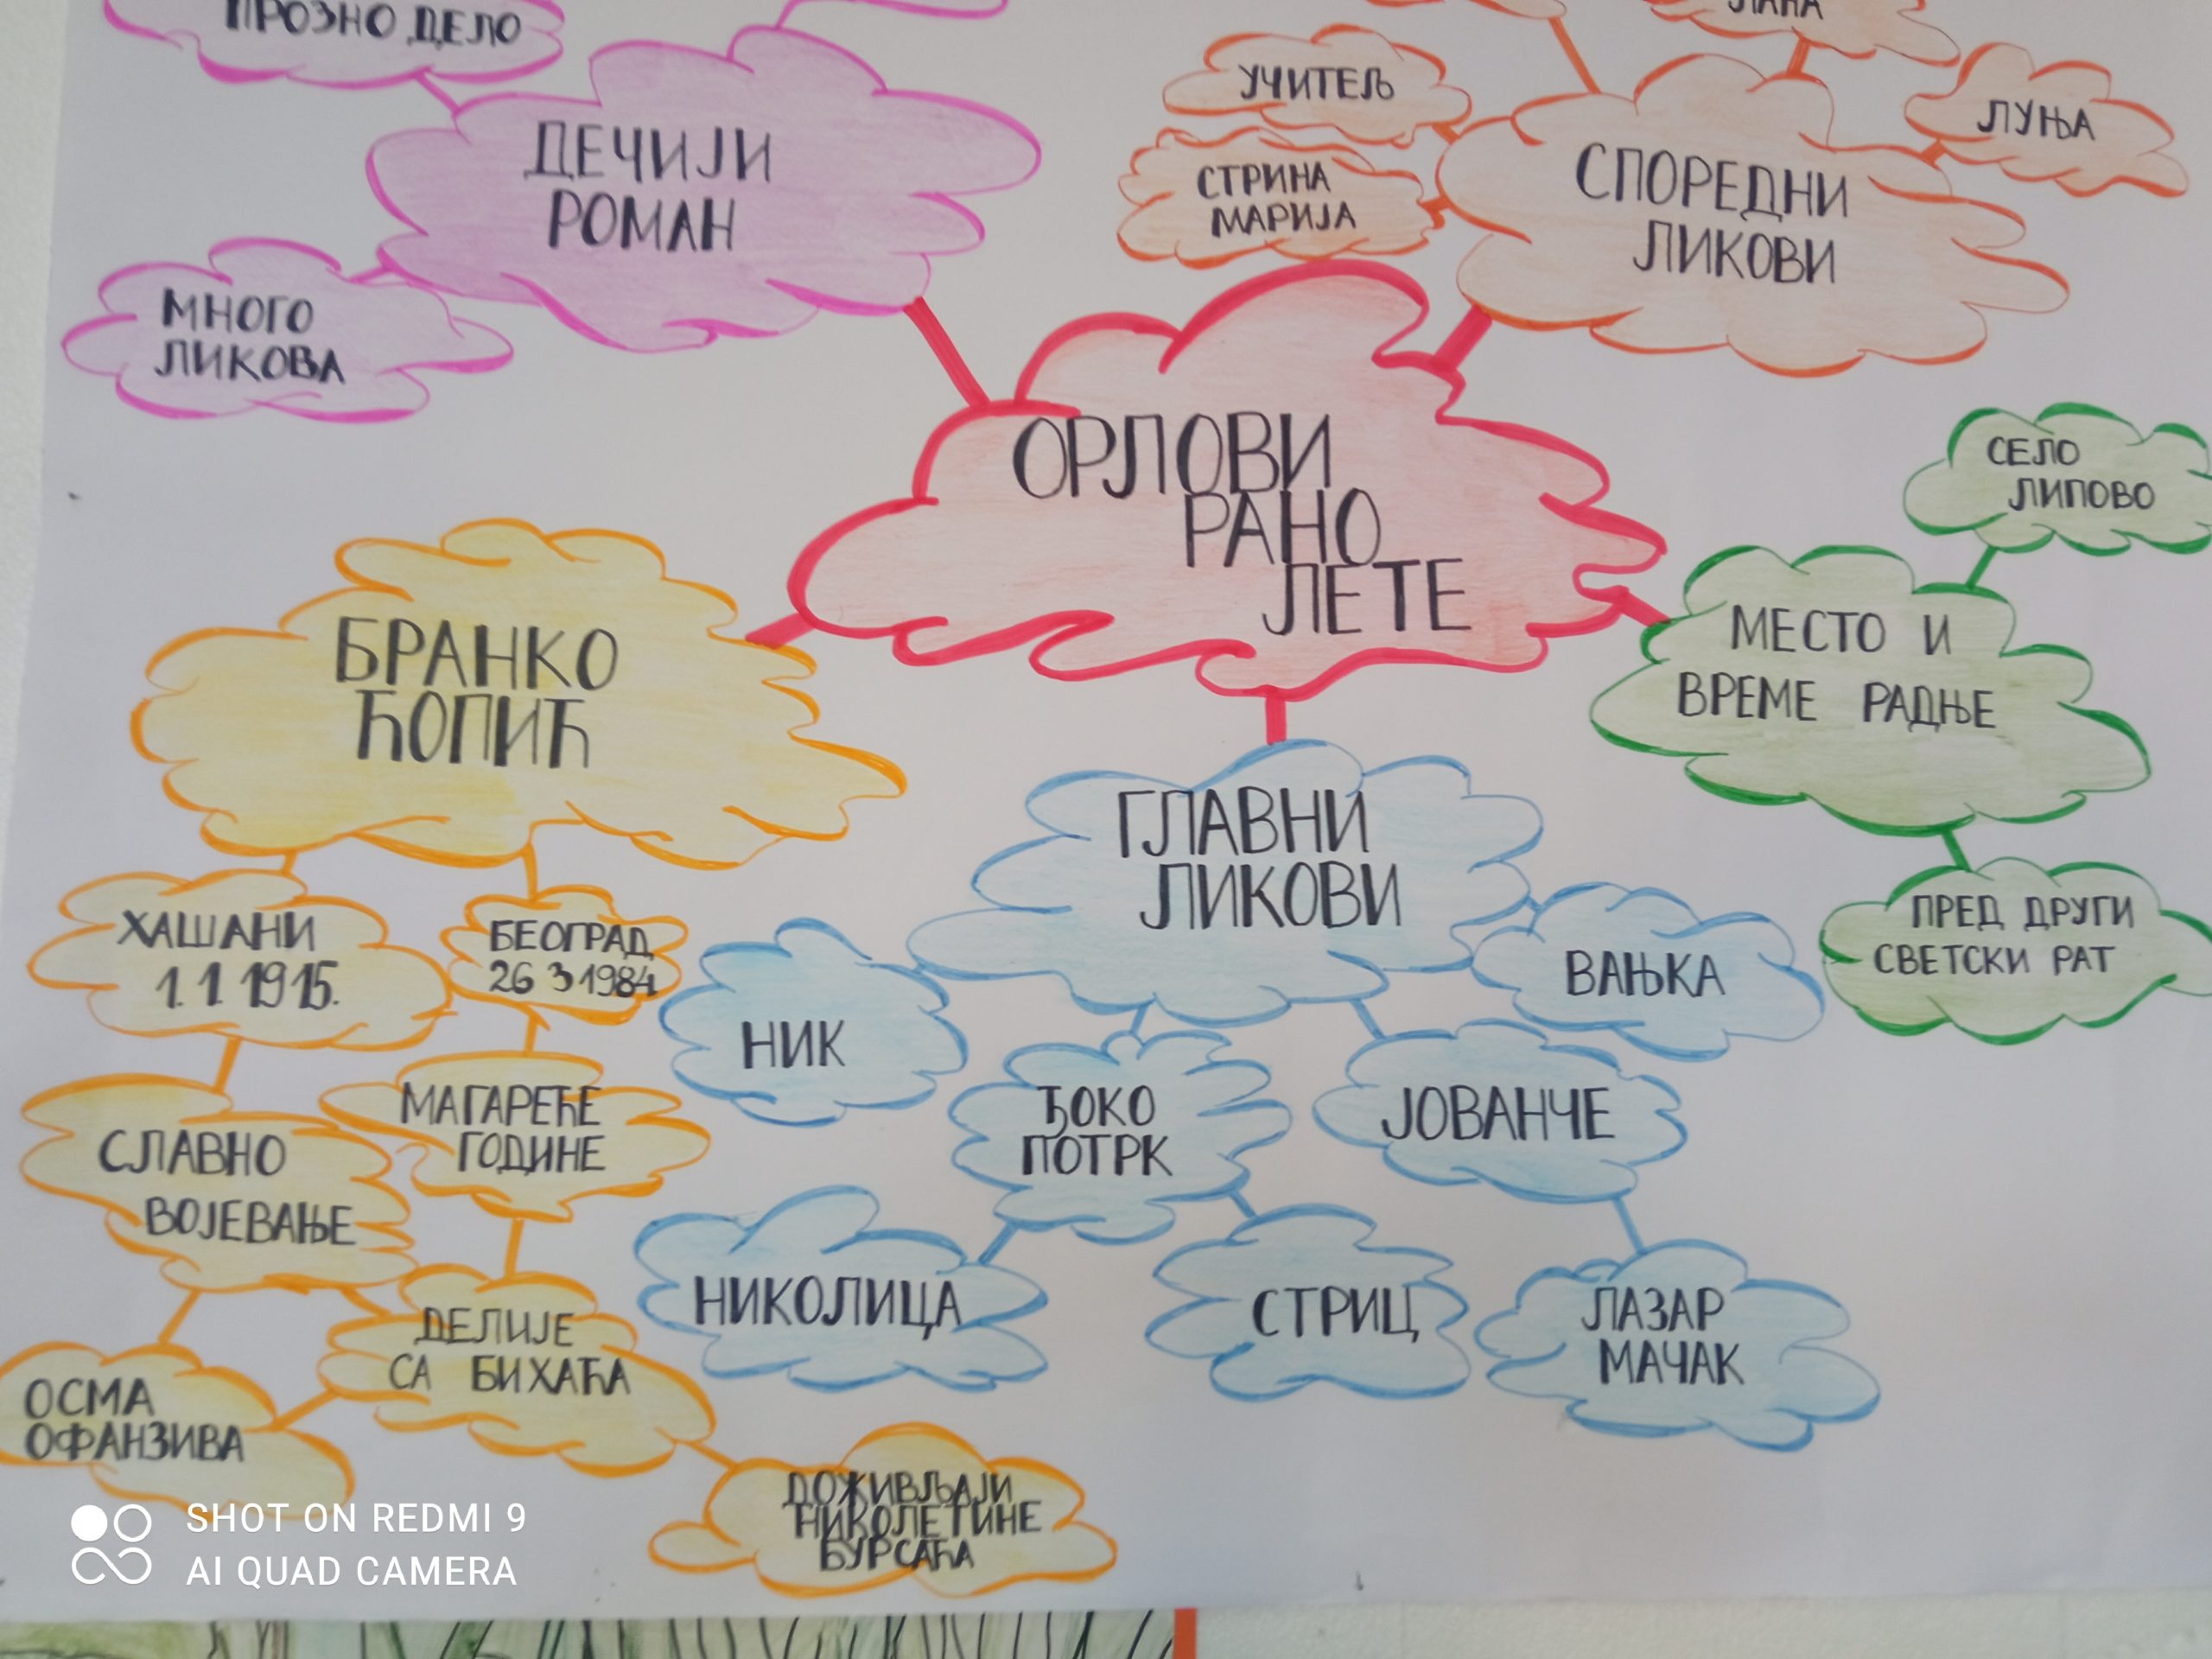 ПРОЗНО ДЕЛО
ДЕЧИЈИ
РОМАН
МНОГО
ЛИКОВА
УЧИТЕЉ
СТРИНА
МАРИЈА
ЛАНА
ЛУЊА
СПОРЕДНИ
ЛИКОВИ
ОРЛОВИ
РАНО
ЛЕТЕ
СЕЛО
ЛИПОВО
МЕСТО И
ВРЕМЕ РАДЊЕ
ПРЕД ДРУГИ
СВЕТСКИ РАТ
БРАНКО
ЋОПИЋ
ХАШАНИ
1. 1. 1915.
БЕОГРАД
26 3 1984
СЛАВНО
ВОЈЕВАЊЕ
МАГАРЕЋЕ
ГОДИНЕ
ДЕЛИЈЕ
СА БИХАЋА
ОСМА
ОФАНЗИВА
ДОЖИВЉАЈИ
НИКОЛЕТИНЕ
БУРСАЋА
ГЛАВНИ
ЛИКОВИ
НИК
ЂОКО
ПОТРК
ЈОВАНЧЕ
ВАЊКА
НИКОЛИЦА
СТРИЦ
ЛАЗАР
МАЧАК
SHOT ON REDMI 9
AI QUAD CAMERA